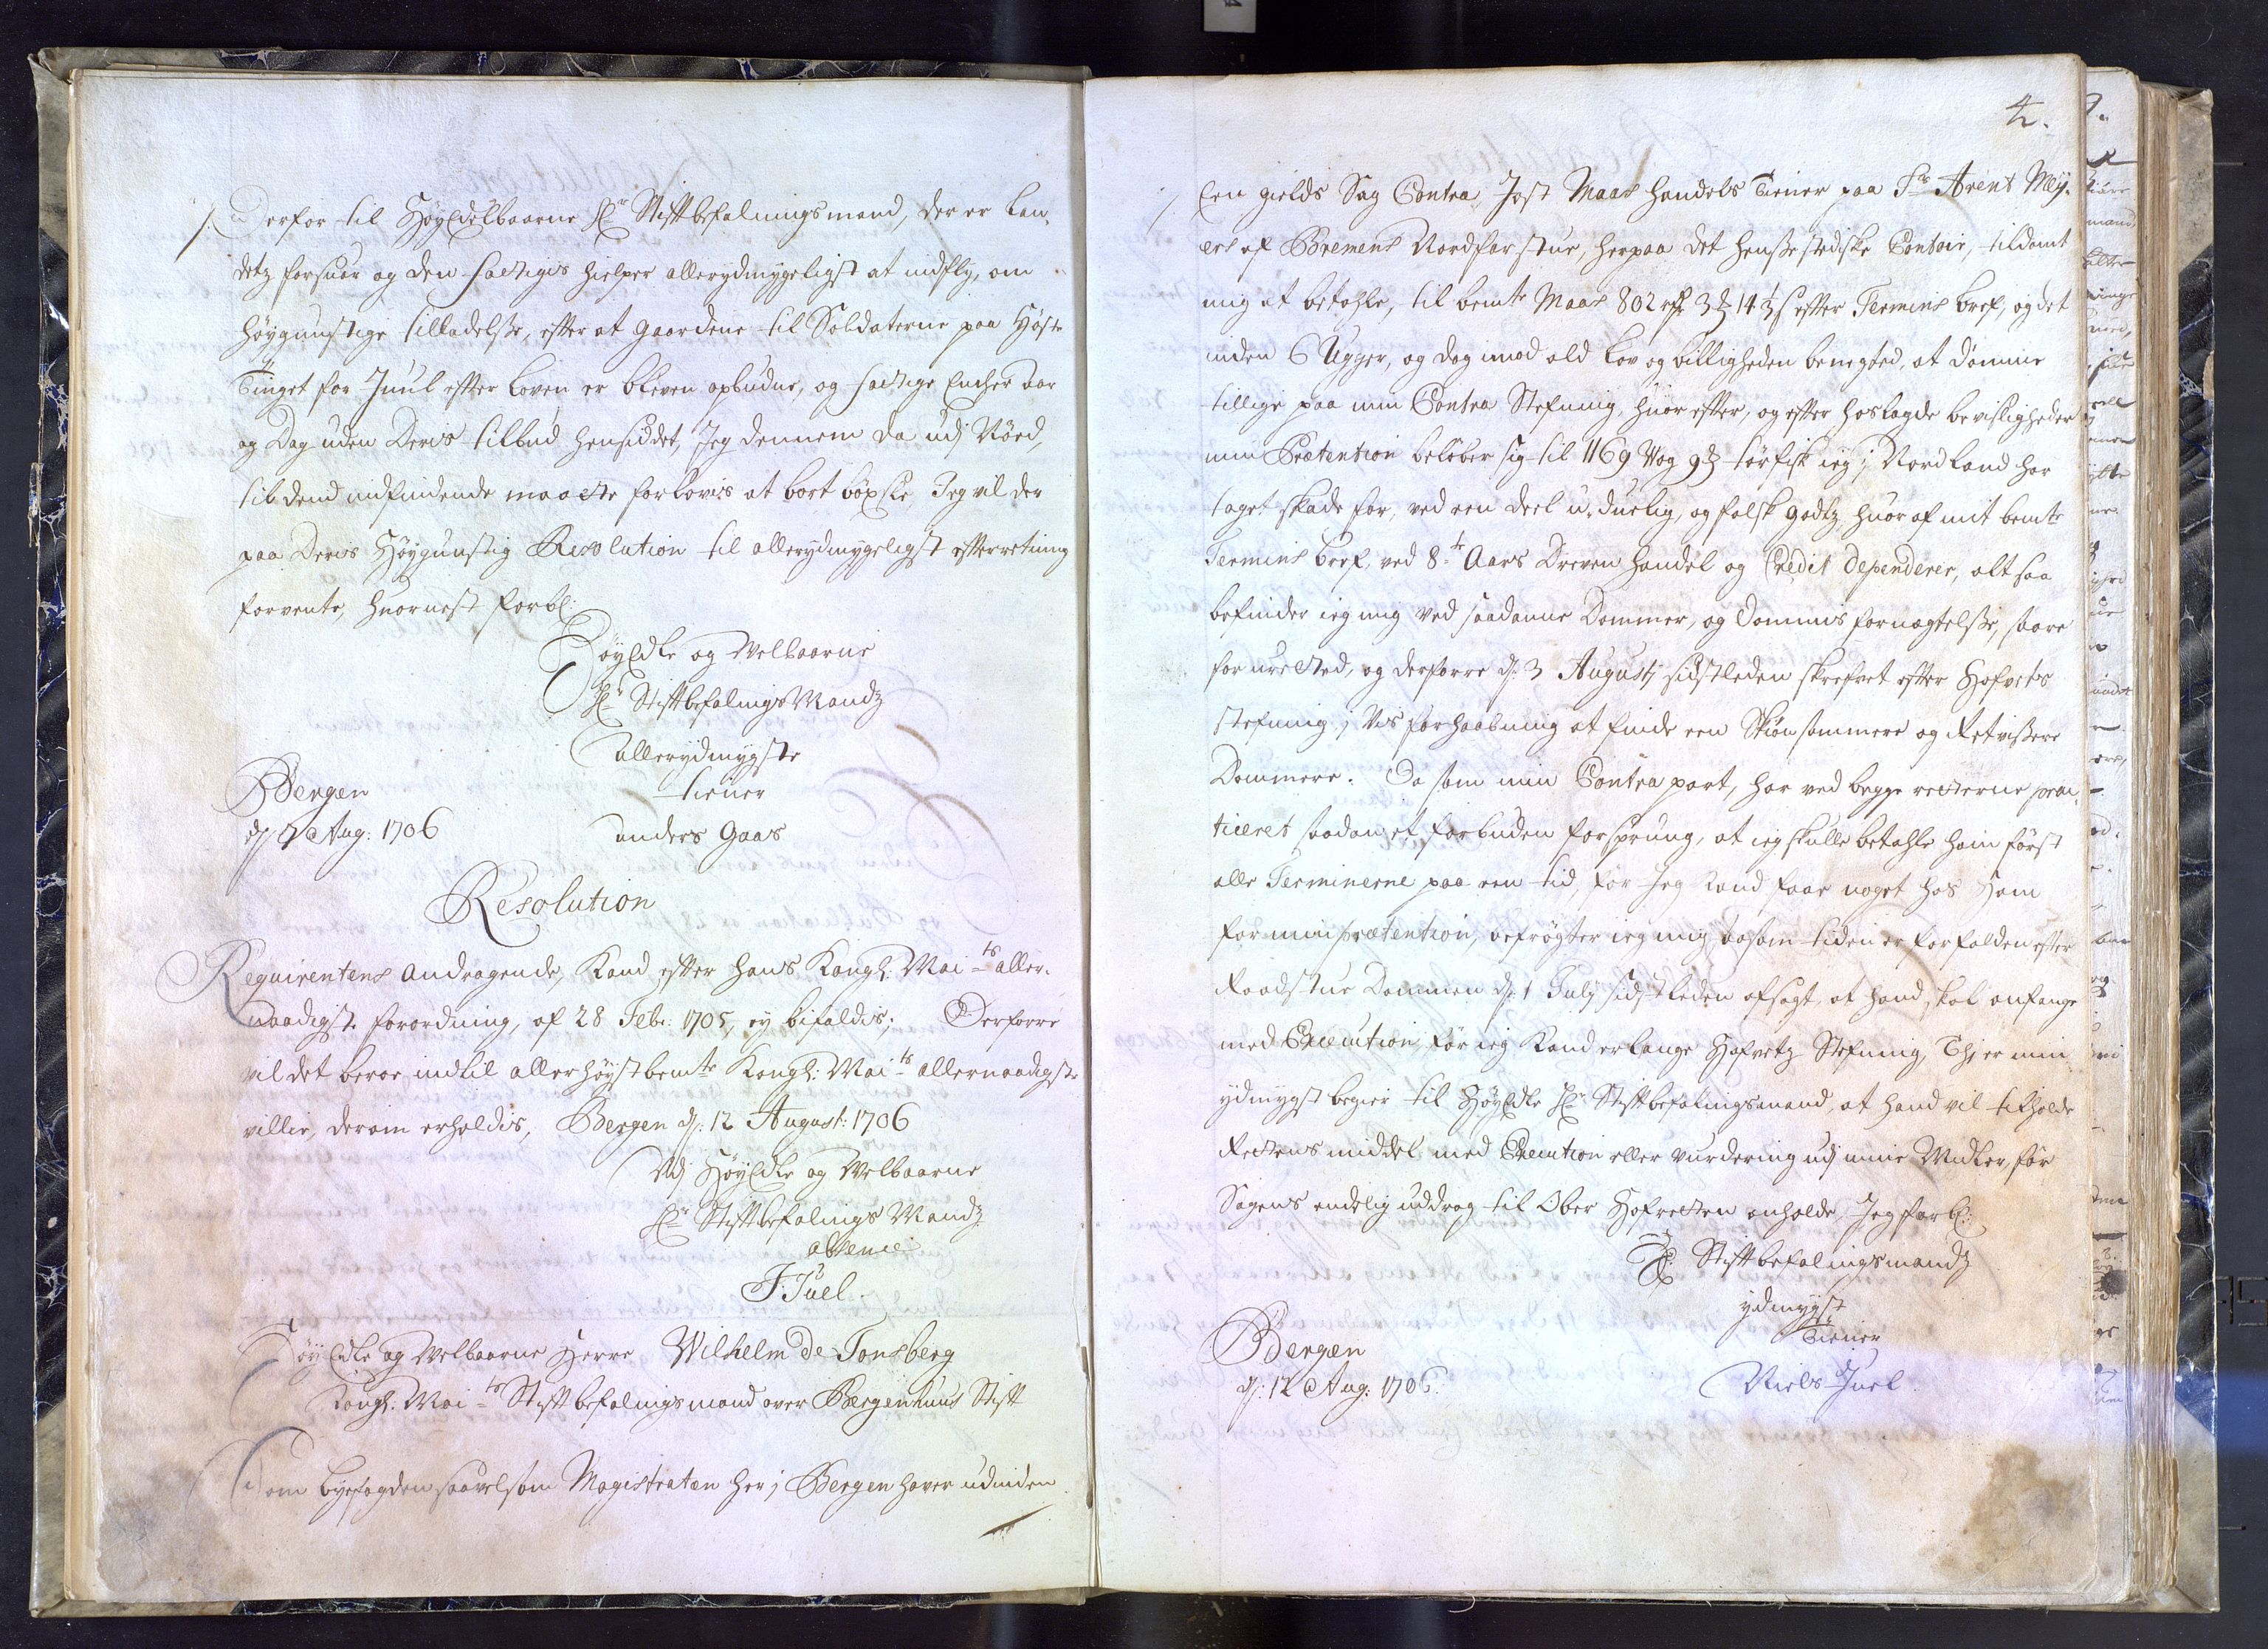 Derfor til HøyEdelbaarne Hr Stiftbefalningsmand, der er Lan-
detz forsuar og den fattiges hielper allerydmygeligst at indfly, om
høygunstige tilladelsse, efter at gaardene til Soldaterne paa Høste
Tinget for Juul efter Loven er bleven opbudne, og fattige Encker aar
og Dag uden Deris tilbud hensiddet, Jeg dennem da udj Nöed,
til dend indfindende maatte forlovis at bort böxsle, Jeg vil der
paa Deris Høygunstig Resolution til allerydmygeligst efterretning
forvente, huornest forbl:
HøyEdle og Velbaarne
Hr Stiftbefalings Mandz
allerydmygste
tiener
anders Gaas
Bergen
dj 7 Aug: 1706
Resolution
Requirentens andragende, Kand efter hans Kongl: Mai ts aller-
naadigste forordning, af 28 Febr: 1705, ey bifaldis; Derforre
vil det beroe indtil allerhøystbemte Kongl: Mai ts allernaadigste
villie, derom erholdis, Bergen dj: 12 August: 1706
Udj HøyEdle og Velbaarne
Hr Stiftbefalings Mandz
absence
J: Juel
HøyEdle og Velbaarne Herre Wilhelm de Tonsberg
Kongl: Mai ts Stiftbefalingsmand over Bergenhuus Stift
Som byefogden saavelsom Magistraten her j Bergen haver udinden
4.
Een gields Sag Contra Jost Maas handels Tiener paa Sr Arent Mey-
ers af Bremens Nordfar stue, her paa det hensestediske Contoir, tildømt
mig at betahle, til bemte Maas 802 rdr 3 14 ½ s efter Termins bref, og det
inden 6 Ugger, og dog imod ald Lov og billigheden benegted, at dømme
tillige paa min Contra Stefning, huor efter, og efter hoslagde bevisligheder
min Prætention beløber sig til 1169 Wog 9 tørfisk ieg j Nordland har
taget skade for, ved een deel u-duelig, og falsk godtz, huor af mit bemte
Termins bref, ved 8te Aars dreven handel og Credit dependerer, alt saa
befinder ieg mig ved saadanne Dommer, og Dommis fornægtelsse, saare
forurettet, og derforre dj: 3 Augustj sidstleden skrefvet efter Hofrets
stefning j Vis forhaabning at finde een Skiønsommere og Retvissere
Dommere. Da som min Contrapart, har ved begge retterne prac-
ticeret saadan et forbuden forsprung, at ieg skulle betahle ham først
alle Terminerne paa een tid, før Jeg Kand faae noget hos Ham
for min prætention, befrøgter ieg mig, dasom tiden er forfalden efter
Raadstue Dommen dj: 1 Julj sidstleden afsagt, at hand skal anfange
med Execution før ieg Kand erlange Hofretz Stefning, Thj er min
ydmygst begier til HøyEdle Hr Stiftbefalingsmand, at hand vil tilholde
Rettens middel med Execution eller vurdering udj mine Midler, før
Sagens endelig uddrag til Ober Hofretten anholde, Jeg forbl:
Hr Stiftbefalingsmandz
ydmygst
Tiener
Niels Juel
Bergen
dj: 12 Aug: 1706.